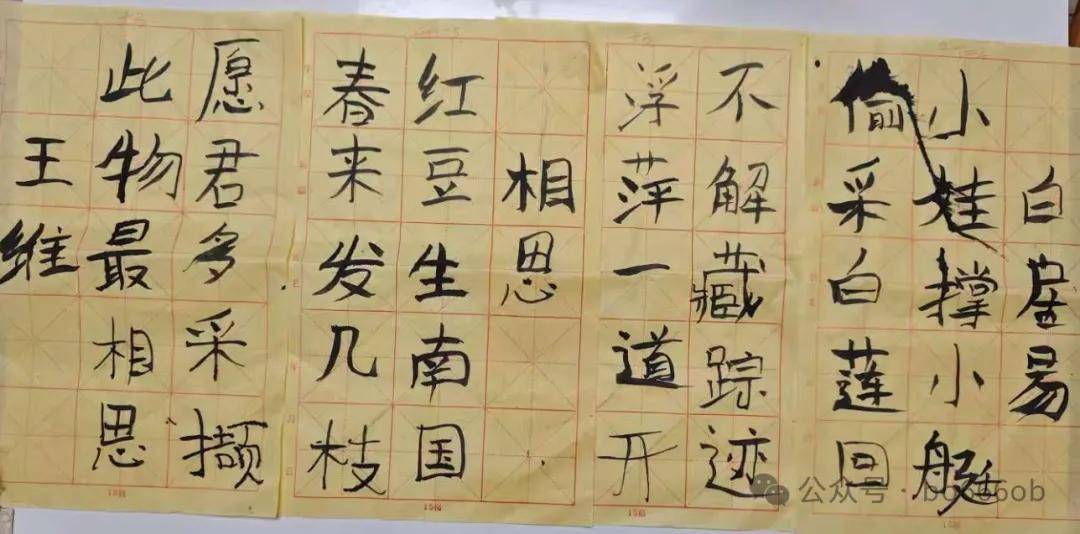 白居易
小娃撑小艇
偷采白莲回
不解藏踪迹
浮萍一道开
相思
红豆生南国
春来发几枝
愿君多采撷
此物最相思
王维
15格
15格
15格
15格
公众号